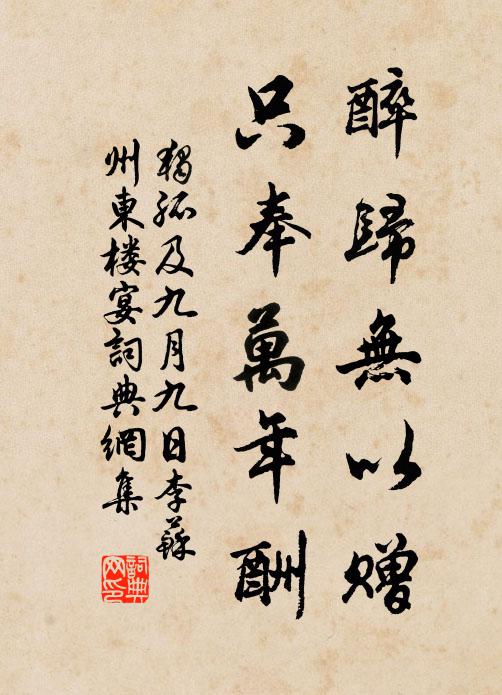 醉歸無以贈
只奉萬年酬
獨孤及九月九日李蘇
州東楼宴詞典網集
詞典网印